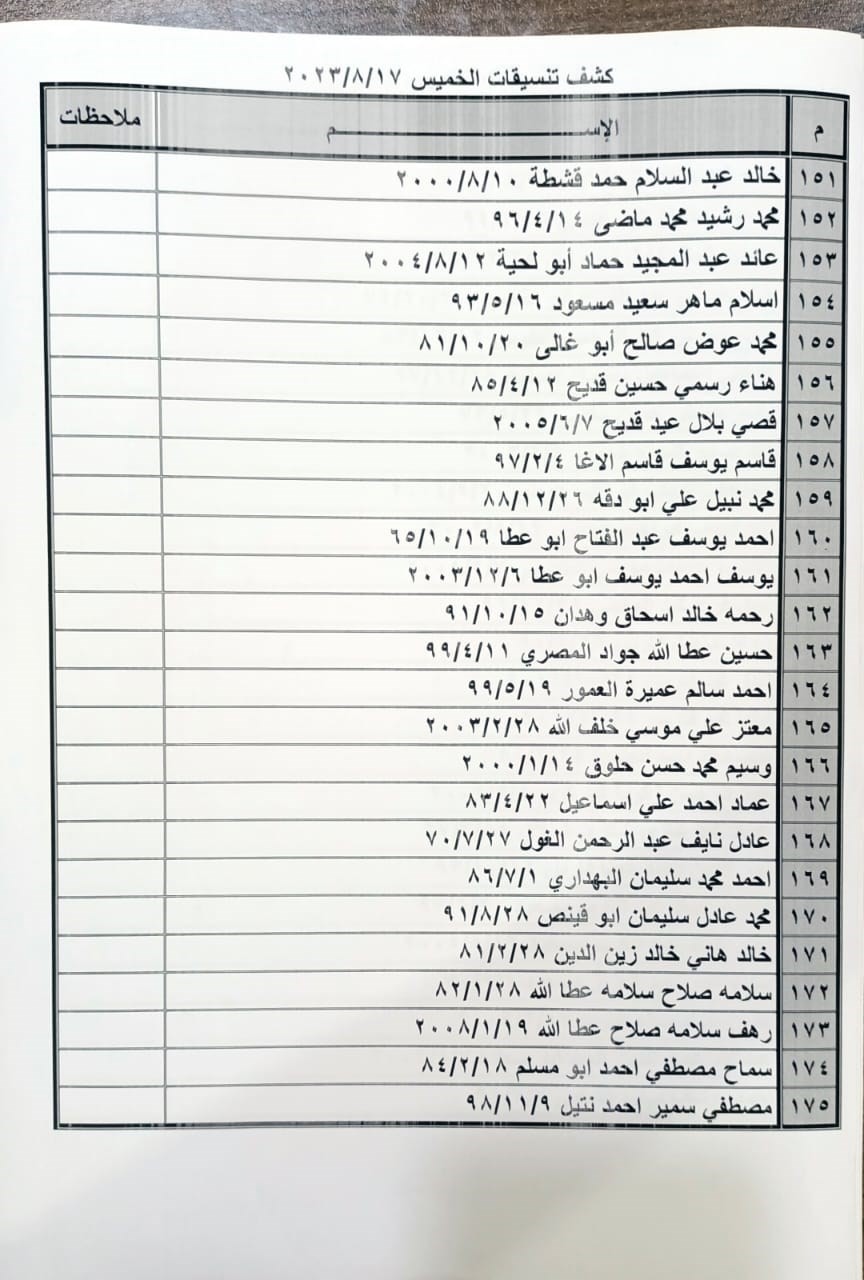 كشف تنسيقات الخميس ٢٠٢٣/٨/١٧
م الإســـــــــــم ملاحظات
١٥١ خالد عبد السلام حمد قشطة ٢٠٠٠/٨/١٠
١٥٢ محمد رشيد محمد ماضى ٩٦/٤/١٤
١٥٣ عائد عبد المجيد حماد أبو لحية ٢٠٠٤/٨/١٢
١٥٤ اسلام ماهر سعيد مسعود ٩٣/٥/١٦
١٥٥ محمد عوض صالح أبو غالى ٨١/١٠/٢٠
١٥٦ هناء رسمي حسين قديح ٨٥/٤/١٢
١٥٧ قصي بلال عيد قديح ٢٠٠٥/٦/٧
١٥٨ قاسم يوسف قاسم الاغا ٩٧/٢/٤
١٥٩ محمد نبيل علي ابو دقه ٨٨/١٢/٢٦
١٦٠ احمد يوسف عبد الفتاح ابو عطا ٦٥/١٠/١٩
١٦١ يوسف احمد يوسف ابو عطا ٢٠٠٣/١٢/٦
١٦٢ رحمه خالد اسحاق وهدان ٩١/١٠/١٥
١٦٣ حسين عطا الله جواد المصري ٩٩/٤/١١
١٦٤ احمد سالم عميرة العمور ٩٩/٥/١٩
١٦٥ معتز علي موسي خلف الله ٢٠٠٣/٢/٢٨
١٦٦ وسيم محمد حسن حلوق ٢٠٠٠/١/١٤
١٦٧ عماد احمد علي اسماعيل ٨٣/٤/٢٢
١٦٨ عادل نايف عبد الرحمن الغول ٧٠/٧/٢٧
١٦٩ احمد محمد سليمان البهداري ٨٦/٧/١
١٧٠ محمد عادل سليمان ابو قينص ٩١/٨/٢٨
١٧١ خالد هاني خالد زين الدين ٨١/٢/٢٨
١٧٢ سلامه صلاح سلامه عطا الله ٨٢/١/٢٨
١٧٣ رهف سلامه صلاح عطا الله ٢٠٠٨/١/١٩
١٧٤ سماح مصطفي احمد ابو مسلم ٨٤/٢/١٨
١٧٥ مصطفي سمير احمد نتيل ٩٨/١١/٩